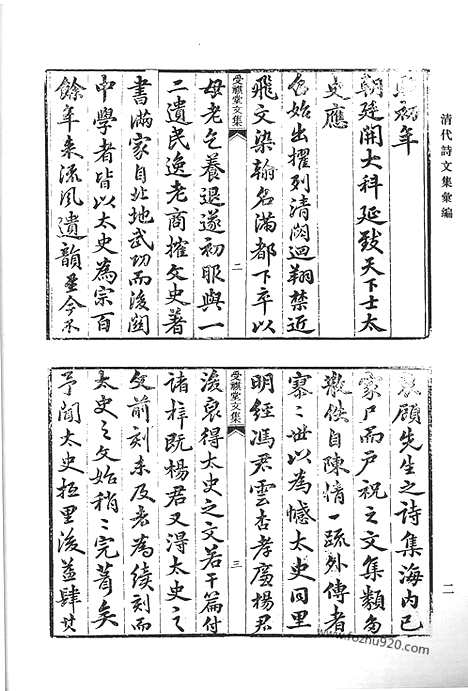 清代詩文集彙編
初年
朝廷開大科延致天下士太
史應
命始出擢列清閟迴翔禁近
飛文染翰名滿都下卒以
受祺堂文集 二
母老乞養退遂初服與一
二遺民逸老商搉文史著
書滿家自北地武功而後關
中學者皆以太史為宗百
餘年來流風遺韻至今不
衰顧先生之詩集海内已
家尸而户祝之文集類多
散佚自陳情一疏外傳者
寥〻世以為憾太史同里
明經馮君雲杏孝廉楊君
受祺堂文集 三
浚裒得太史之文若干篇付
諸梓既楊君又得太史之
文前刻未及者為續刻而
太史之文始稍〻完善矣
予聞太史歸里後益肆其
二
www.fozhu920.com